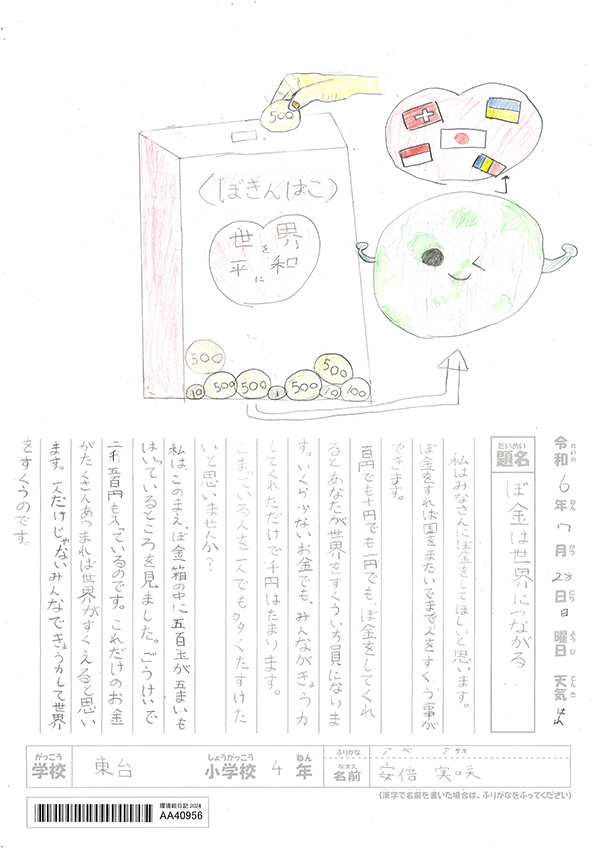 500
〈ぼきんばこ〉
世界を
平和に
500
10
500
500
1
500
500
10
100
令和6年7月28日日曜日 天気はれ
れいわ ねん がつ にち ようび てんき
だいめい
題名
ぼ金は世界につながる
私はみなさんにぼ金をしてほしいと思います。
ぼ金をすれば国をまたいでまで人をすくう事が
できます。
百円でも十円でも一円でも、ぼ金をしてくれ
るとあなたが世界をすくういち員になりま
す。いくら少ないお金でも、みんながきょう力
してくれただけで千円はたまります。
こまっている人を一人でも多くたすけた
いと思いませんか？
私は、このまえ、ぼ金箱の中に五百玉が五まいも
はいっているところを見ました。ごうけいで
二千五百円も入っているのです。これだけのお金
がたくさんあつまれば世界がすくえると思い
ます。一人だけじゃないみんなできょう力して世界
をすくうのです。
がっこう
学校
東台
しょうがっこう
小学校
4
ねん
年
ふりがな
アベ ミサキ
なまえ
名前
安倍 実咲
(漢字で名前を書いた場合は、ふりがなをふってください)
環境絵日記 2024
AA40956